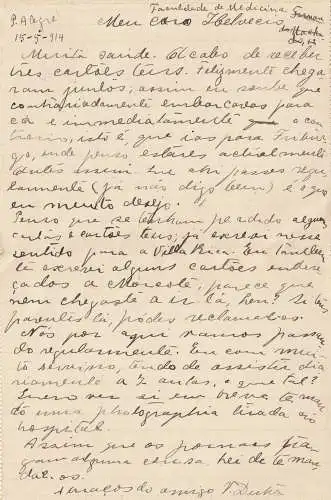 Faculdade de Medicina
P. Alegre
15-5-914
Meu caro Helvecio
Muita saude. Acabo de receber
tres cartões teus. Felizmente chega
ram juntos, assim eu soube que
contrariadamente embarcados para
cá e immediatamente o con
trario, isto é que ias para Fribur
go, onde penso estares actualmente
Antes assim. Que ahi passes regu
larmente (já não digo bem) é o que
eu muito desejo.
Penso que se tenham perdido algumas
cartas e cartões teus; já escrevi nesse
sentido para a Villa Rica. Eu tambem
te escrevi alguns cartões ende
reçados a parece que
nem chegaste a ir lá, hein? Se
podes reclamal-os.
Nós por aqui vamos passan
do regularmente. Eu com mui
to serviço, tendo de assistir dia
riamente a 7 aulas, e que tal?
Quero ver si em breve te man
do uma photographia tirada no
hospital.
Assim que os jornaes tra
gam alguma cousa, hei de te man
dal-os.
do amigo V. Dutra